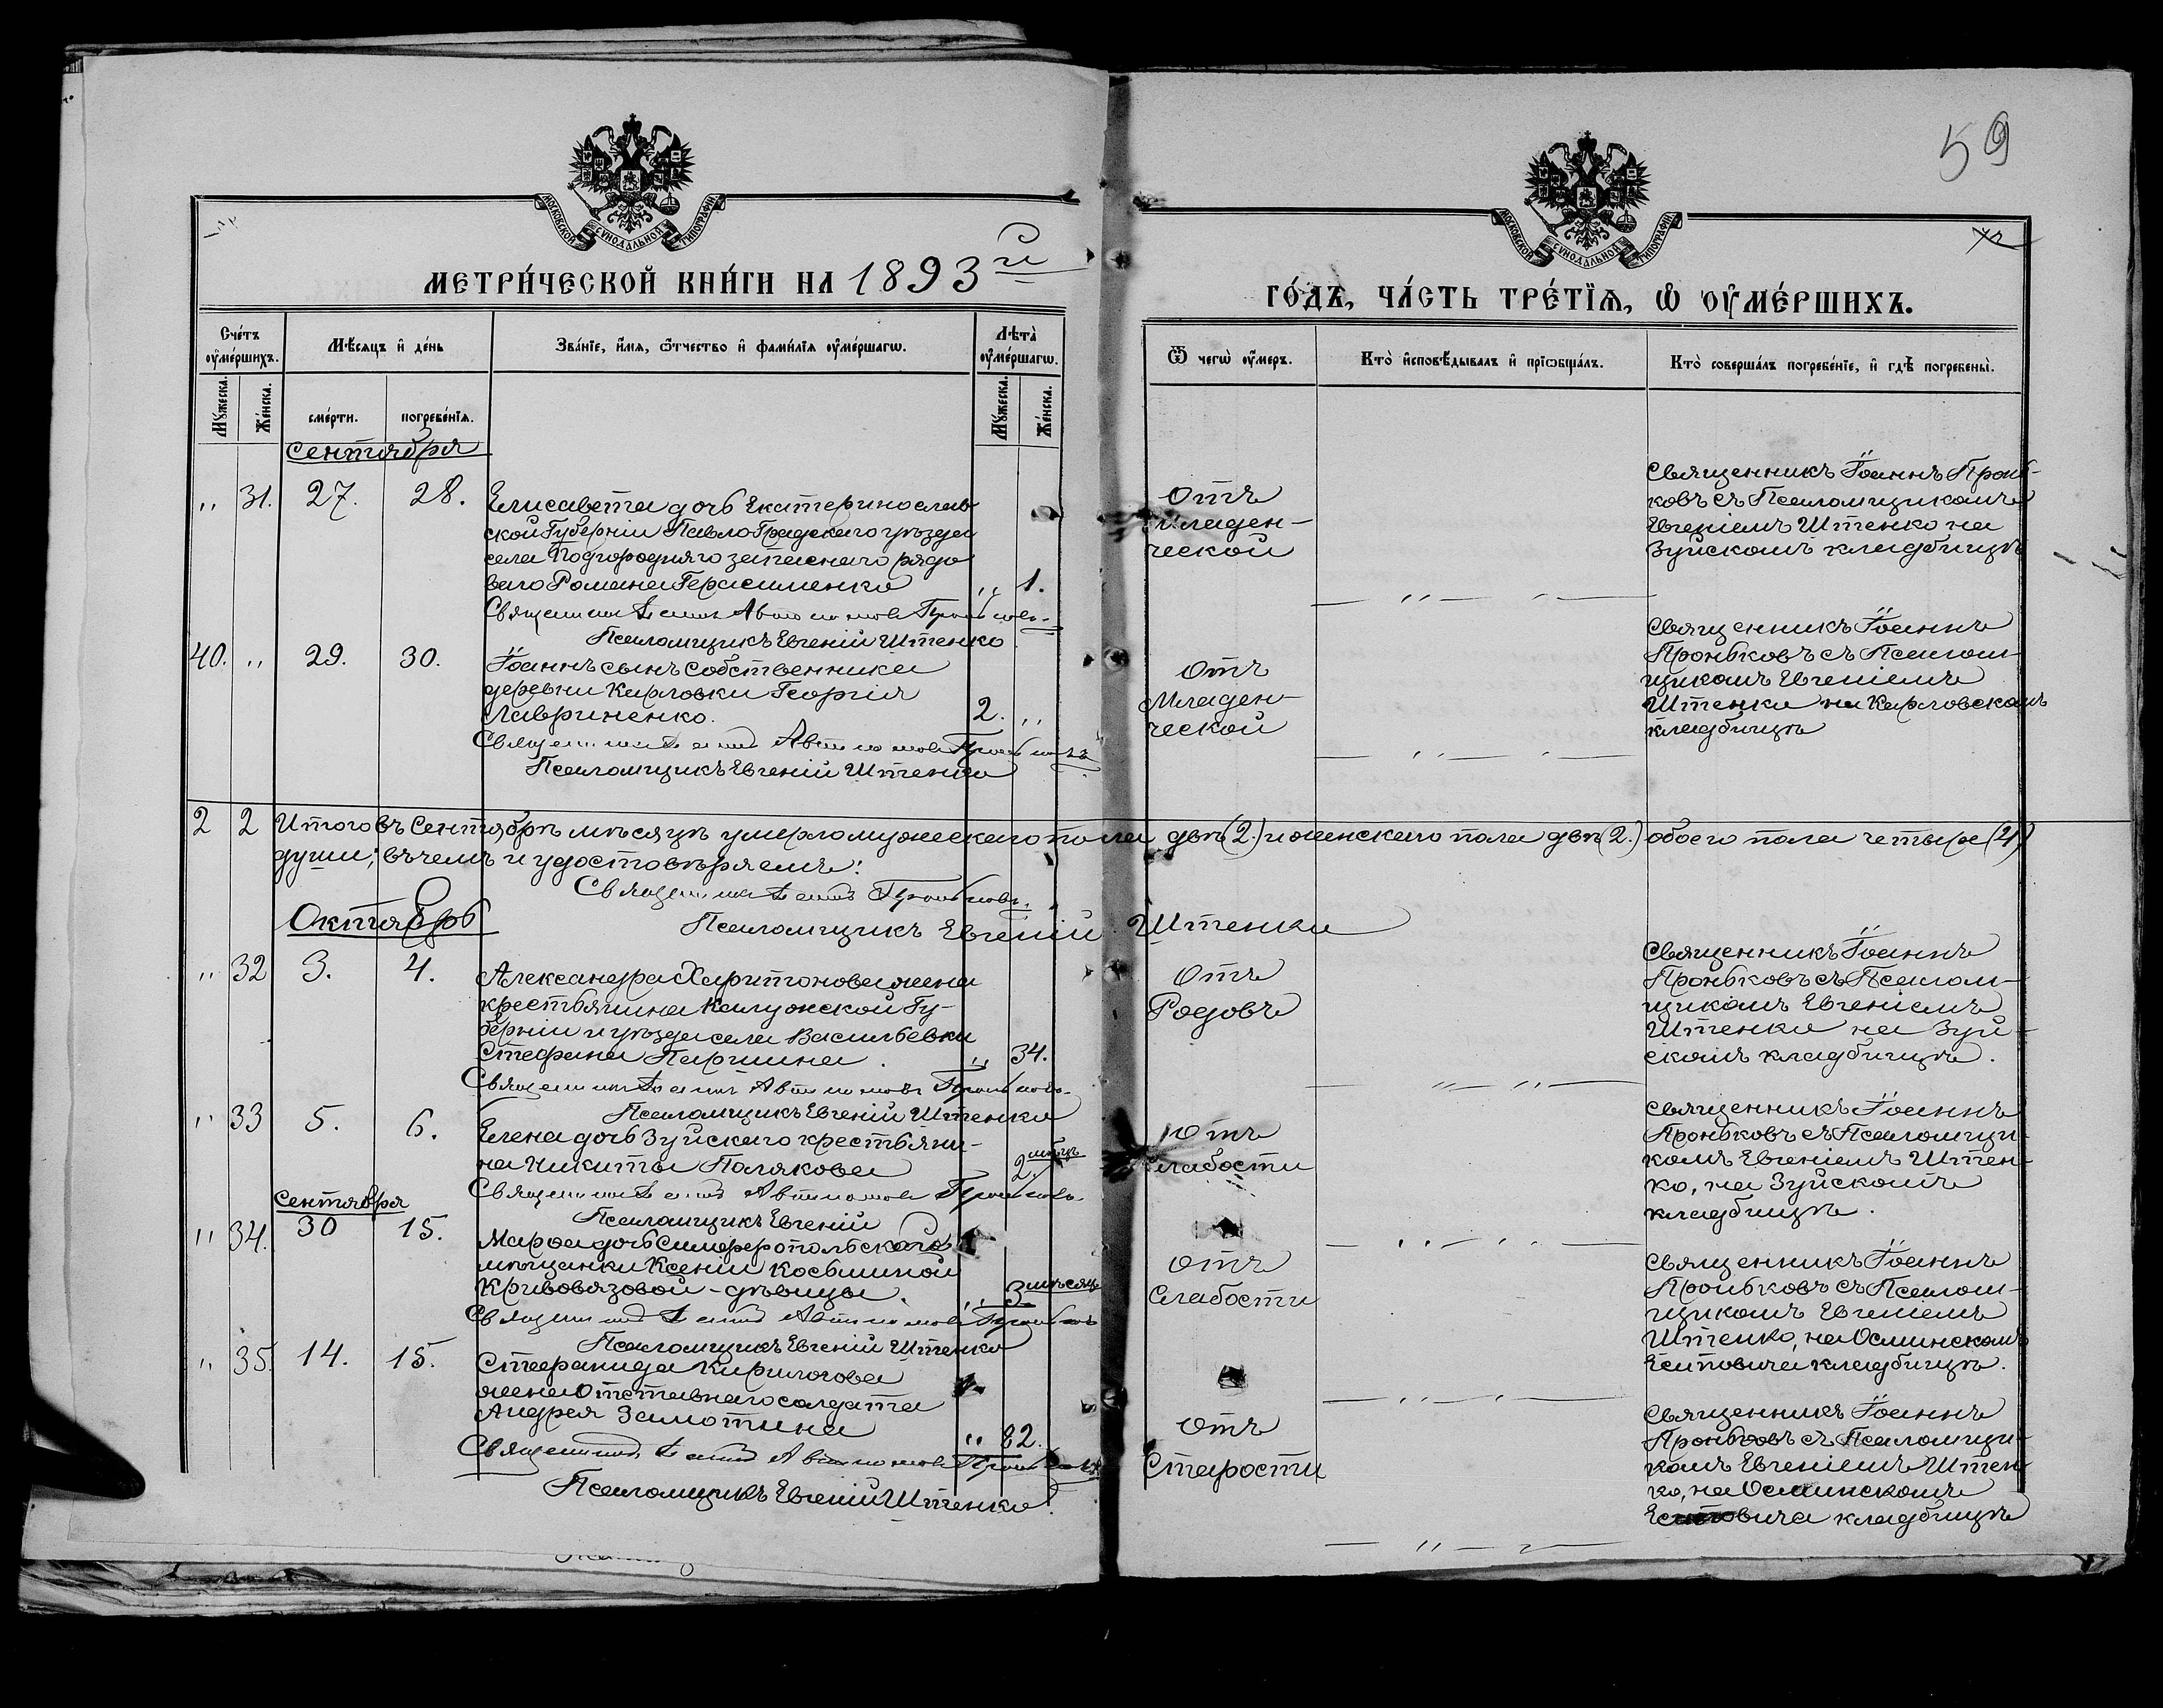 59
МОСКОВСКОЙ СѴНОДАЛЬНОЙ ТИПОГРАФІИ
МОСКОВСКОЙ СѴНОДАЛЬНОЙ ТИПОГРАФІИ
МЕТРИ́ЧЕСКОЙ КНИ́ГИ НА 1893й
ГО́ДЪ, ЧА́СТЬ ТРЕ́ТІѦ, Ѡ ОУ҆МЕ́РШИХЪ.
Сче́тъ оу҆ме́ршихъ.
Мѣ́сяцъ и҆ де́нь
Зва́нїе, и҆́мѧ, ѻ҆́тчество и҆ фами́лїѧ оу҆ме́ршагѡ.
Лѣта̀ оу҆ме́ршагѡ.
Ѿ чегѡ̀ оу҆́меръ.
Кто̀ и҆сповѣ́дывалъ и҆ прїѡбща́лъ.
Кто̀ соверша́лъ погребе́нїе, и҆ гдѣ̀ погребены̀.
Мꙋ́жеска.
Же́нска.
сме́рти.
погребе́нїѧ.
Мꙋ́жеска.
Же́нска.
Сентября
" 31. 27. 28.
Елисавета дочь Екатеринослав-
ской Губерніи Павлоградскаго уѣзда
села Подгородняго запаснаго рядо
ваго Романа Герасименко " 1.
Священникъ Іоаннъ Автономовъ Проньковъ.
Псаломщикъ Евгеній Штенко
Отъ
Младен-
ческой
Священникъ Іоаннъ Пронь-
ковъ съ Псаломщикомъ
Евгеніемъ Штенко на
Зуйскомъ кладбищѣ
40. " 29. 30.
Іоаннъ сынъ Собственника
деревни Карловки Георгія
Лавриненко. 2. "
Священникъ Іоаннъ Автономовъ Проньковъ
Псаломщикъ Евгеній Штенко
Отъ
Младен-
ческой
Священникъ Іоаннъ
Проньковъ съ Псалом-
щикомъ Евгеніемъ
Штенко на Карловскомъ
кладбищѣ
2 2 Итого въ Сентябрѣ мѣсяцѣ умерло мужескаго пола двѣ (2.) и женскаго пола двѣ (2.) обоего пола четыре (4)
души; въ чемъ и удостовѣряемъ:
Священникъ Іоаннъ Проньковъ.
Псаломщикъ Евгеній Штенко
Октябрь
" 32 3. 4.
Александра Харитонова жена
крестьянина Калужской Гу-
берніи и уѣзда села Васильевки
Стефана Паршина. " 34.
Священникъ Іоаннъ Автономовъ Проньковъ.
Псаломщикъ Евгеній Штенко
Отъ
Родовъ
Священникъ Іоаннъ
Проньковъ съ Псалом-
щикомъ Евгеніемъ
Штенко на Зуй-
скомъ кладбищѣ.
" 33 5. 6.
Елена дочь Зуйскаго крестьяни-
на Никиты Полякова 2 мѣсц.
Священникъ Іоаннъ Автономовъ Проньковъ.
Псаломщикъ Евгеній
Отъ
Слабости
Священникъ Іоаннъ
Проньковъ съ Псаломщи-
комъ Евгеніемъ Штен-
ко, на Зуйскомъ
кладбищѣ.
Сентября
" 34. 30 15.
Марѳа дочь Симферопольской
мѣщанки Ксеніи Косьминой
Кривовязовой - дѣвицы. " 3 мѣсяц.
Священникъ Іоаннъ Автономовъ Проньковъ
Псаломщикъ Евгеній Штенко
Отъ
Слабости
Священникъ Іоаннъ
Проньковъ съ Псалом-
щикомъ Евгеніемъ
Штенко, на Осминскомъ
Есиповича кладбищѣ.
" 35. 14. 15.
Стефанида Кирилова
жена Отставнаго солдата
Андрея Замотина " 82.
Священникъ Іоаннъ Автономовъ Проньковъ
Псаломщикъ Евгеній Штенко.
Отъ
Старости
Священникъ Іоаннъ
Проньковъ съ Псаломщи-
комъ Евгеніемъ Штен-
ко, на Осминскомъ
Есиповича кладбищѣ